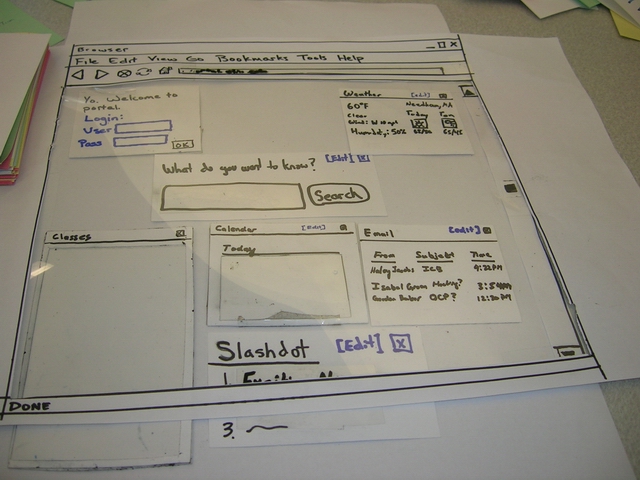 Browser
File Edit View Go Bookmarks Tools Help
Yo. Welcome to
portal.
Login:
User
Pass
OK
Weather [edit]
60°F Needham, MA
Clear Today Tom
Humidity: 50%
What do you want to know? [Edit] X
Search
Classes
Calendar [Edit]
Today
Email [edit]
From Subject Time
ICB 4:32PM
Isabel Green Meeting? 3:54PM
OCP? 12:30 PM
Slashdot [Edit] X
1.
3.
DONE